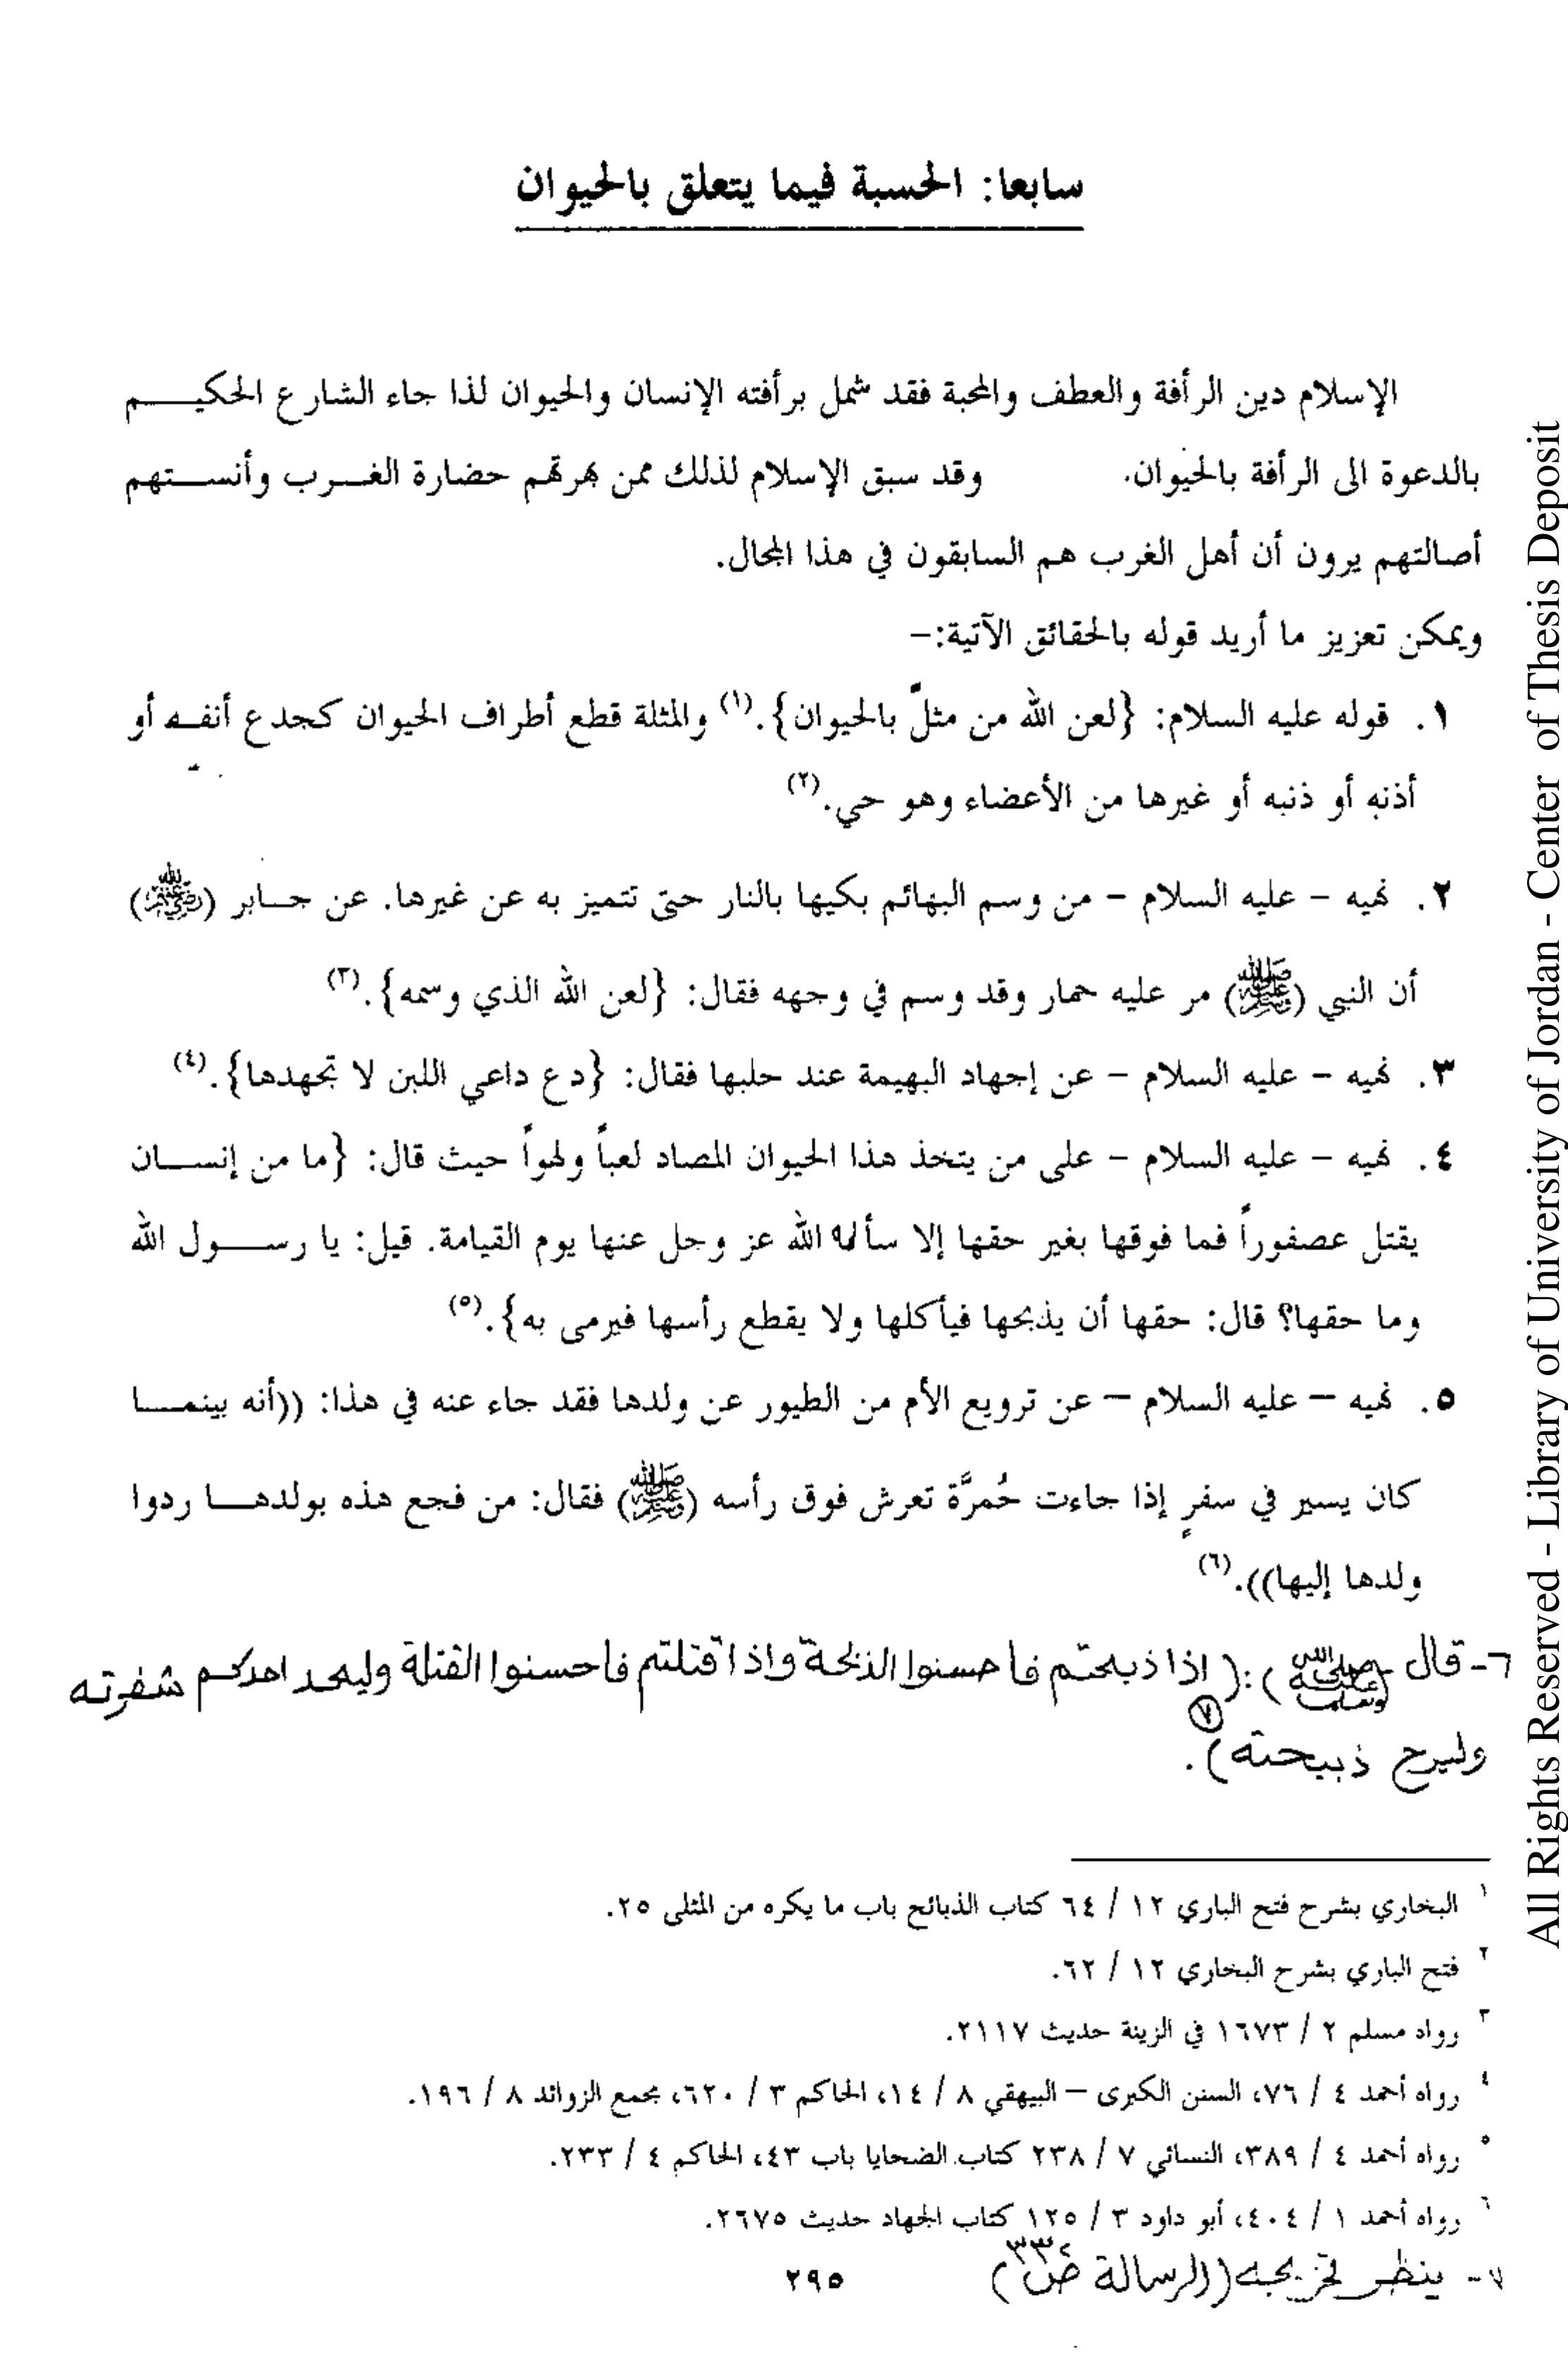 سابعا: الحسبة فيما يتعلق بالحيوان
الإسلام دين الرأفة والعطف والمحبة فقد شمل برأفته الإنسان والحيوان لذا جاء الشارع الحكيم
بالدعوة الى الرأفة بالحيوان. وقد سبق الإسلام لذلك ممن بهرتهم حضارة الغرب وأنستهم
أصالتهم يرون أن أهل الغرب هم السابقون في هذا المجال.
ويمكن تعزيز ما أريد قوله بالحقائق الآتية:–
١. قوله عليه السلام: {لعن الله من مثلّ بالحيوان}.(١) والمثلة قطع أطراف الحيوان كجدع أنفه أو
أذنه أو ذنبه أو غيرها من الأعضاء وهو حي.(٢)
٢. نهيه – عليه السلام – من وسم البهائم بكيها بالنار حتى تتميز به عن غيرها. عن جابر (رضي الله عنه)
أن النبي (ﷺ) مر عليه حمار وقد وسم في وجهه فقال: {لعن الله الذي وسمه}.(٣)
٣. نهيه – عليه السلام – عن إجهاد البهيمة عند حلبها فقال: {دع داعي اللبن لا تجهدها}.(٤)
٤. نهيه – عليه السلام – على من يتخذ هذا الحيوان المصاد لعباً ولهواً حيث قال: {ما من إنسان
يقتل عصفوراً فما فوقها بغير حقها إلا سأله الله عز وجل عنها يوم القيامة. قيل: يا رسول الله
وما حقها؟ قال: حقها أن يذبحها فيأكلها ولا يقطع رأسها فيرمى به}.(٥)
٥. نهيه – عليه السلام – عن ترويع الأم من الطيور عن ولدها فقد جاء عنه في هذا: ((أنه بينما
كان يسير في سفرٍ إذا جاءت حُمرَّة تعرش فوق رأسه (ﷺ) فقال: من فجع هذه بولدها ردوا
ولدها إليها)).(٦)
٦- قال (ﷺ): (اذا ذبحتم فاحسنوا الذبحة واذا قتلتم فاحسنوا القتلة وليحد احدكم شفرته
وليرح ذبيحته)(٧).
١ البخاري بشرح فتح الباري ١٢ / ٦٤ كتاب الذبائح باب ما يكره من المثلى ٢٥.
٢ فتح الباري بشرح البخاري ١٢ / ٦٢.
٣ رواد مسلم ٢ / ١٦٧٣ في الزينة حديث ٢١١٧.
٤ رواه أحمد ٤ / ٧٦، السنن الكبرى – البيهقي ٨ / ١٤، الحاكم ٣ / ٦٢٠، مجمع الزوائد ٨ / ١٩٦.
٥ رواه أحمد ٤ / ٣٨٩، النسائي ٧ / ٢٣٨ كتاب الضحايا باب ٤٣، الحاكم ٤ / ٢٣٣.
٦ رواه أحمد ١ / ٤٠٤، أبو داود ٣ / ١٢٥ كتاب الجهاد حديث ٢٦٧٥.
٧- ينظر تخريجه (الرسالة ص )
٢٩٥
All Rights Reserved - Library of University of Jordan - Center of Thesis Deposit